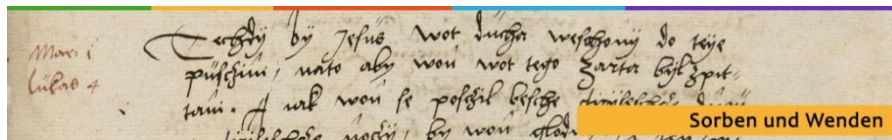 Marci i
Lukas 4
Techdÿ bÿ Jesus wot ducha weschonÿ do teÿe
puschzinÿ, nato abÿ won wot tego Zarta bÿl zpit-
tanÿ. A nak won se poschzil besche
nozÿ, bÿ won
Sorben und Wenden